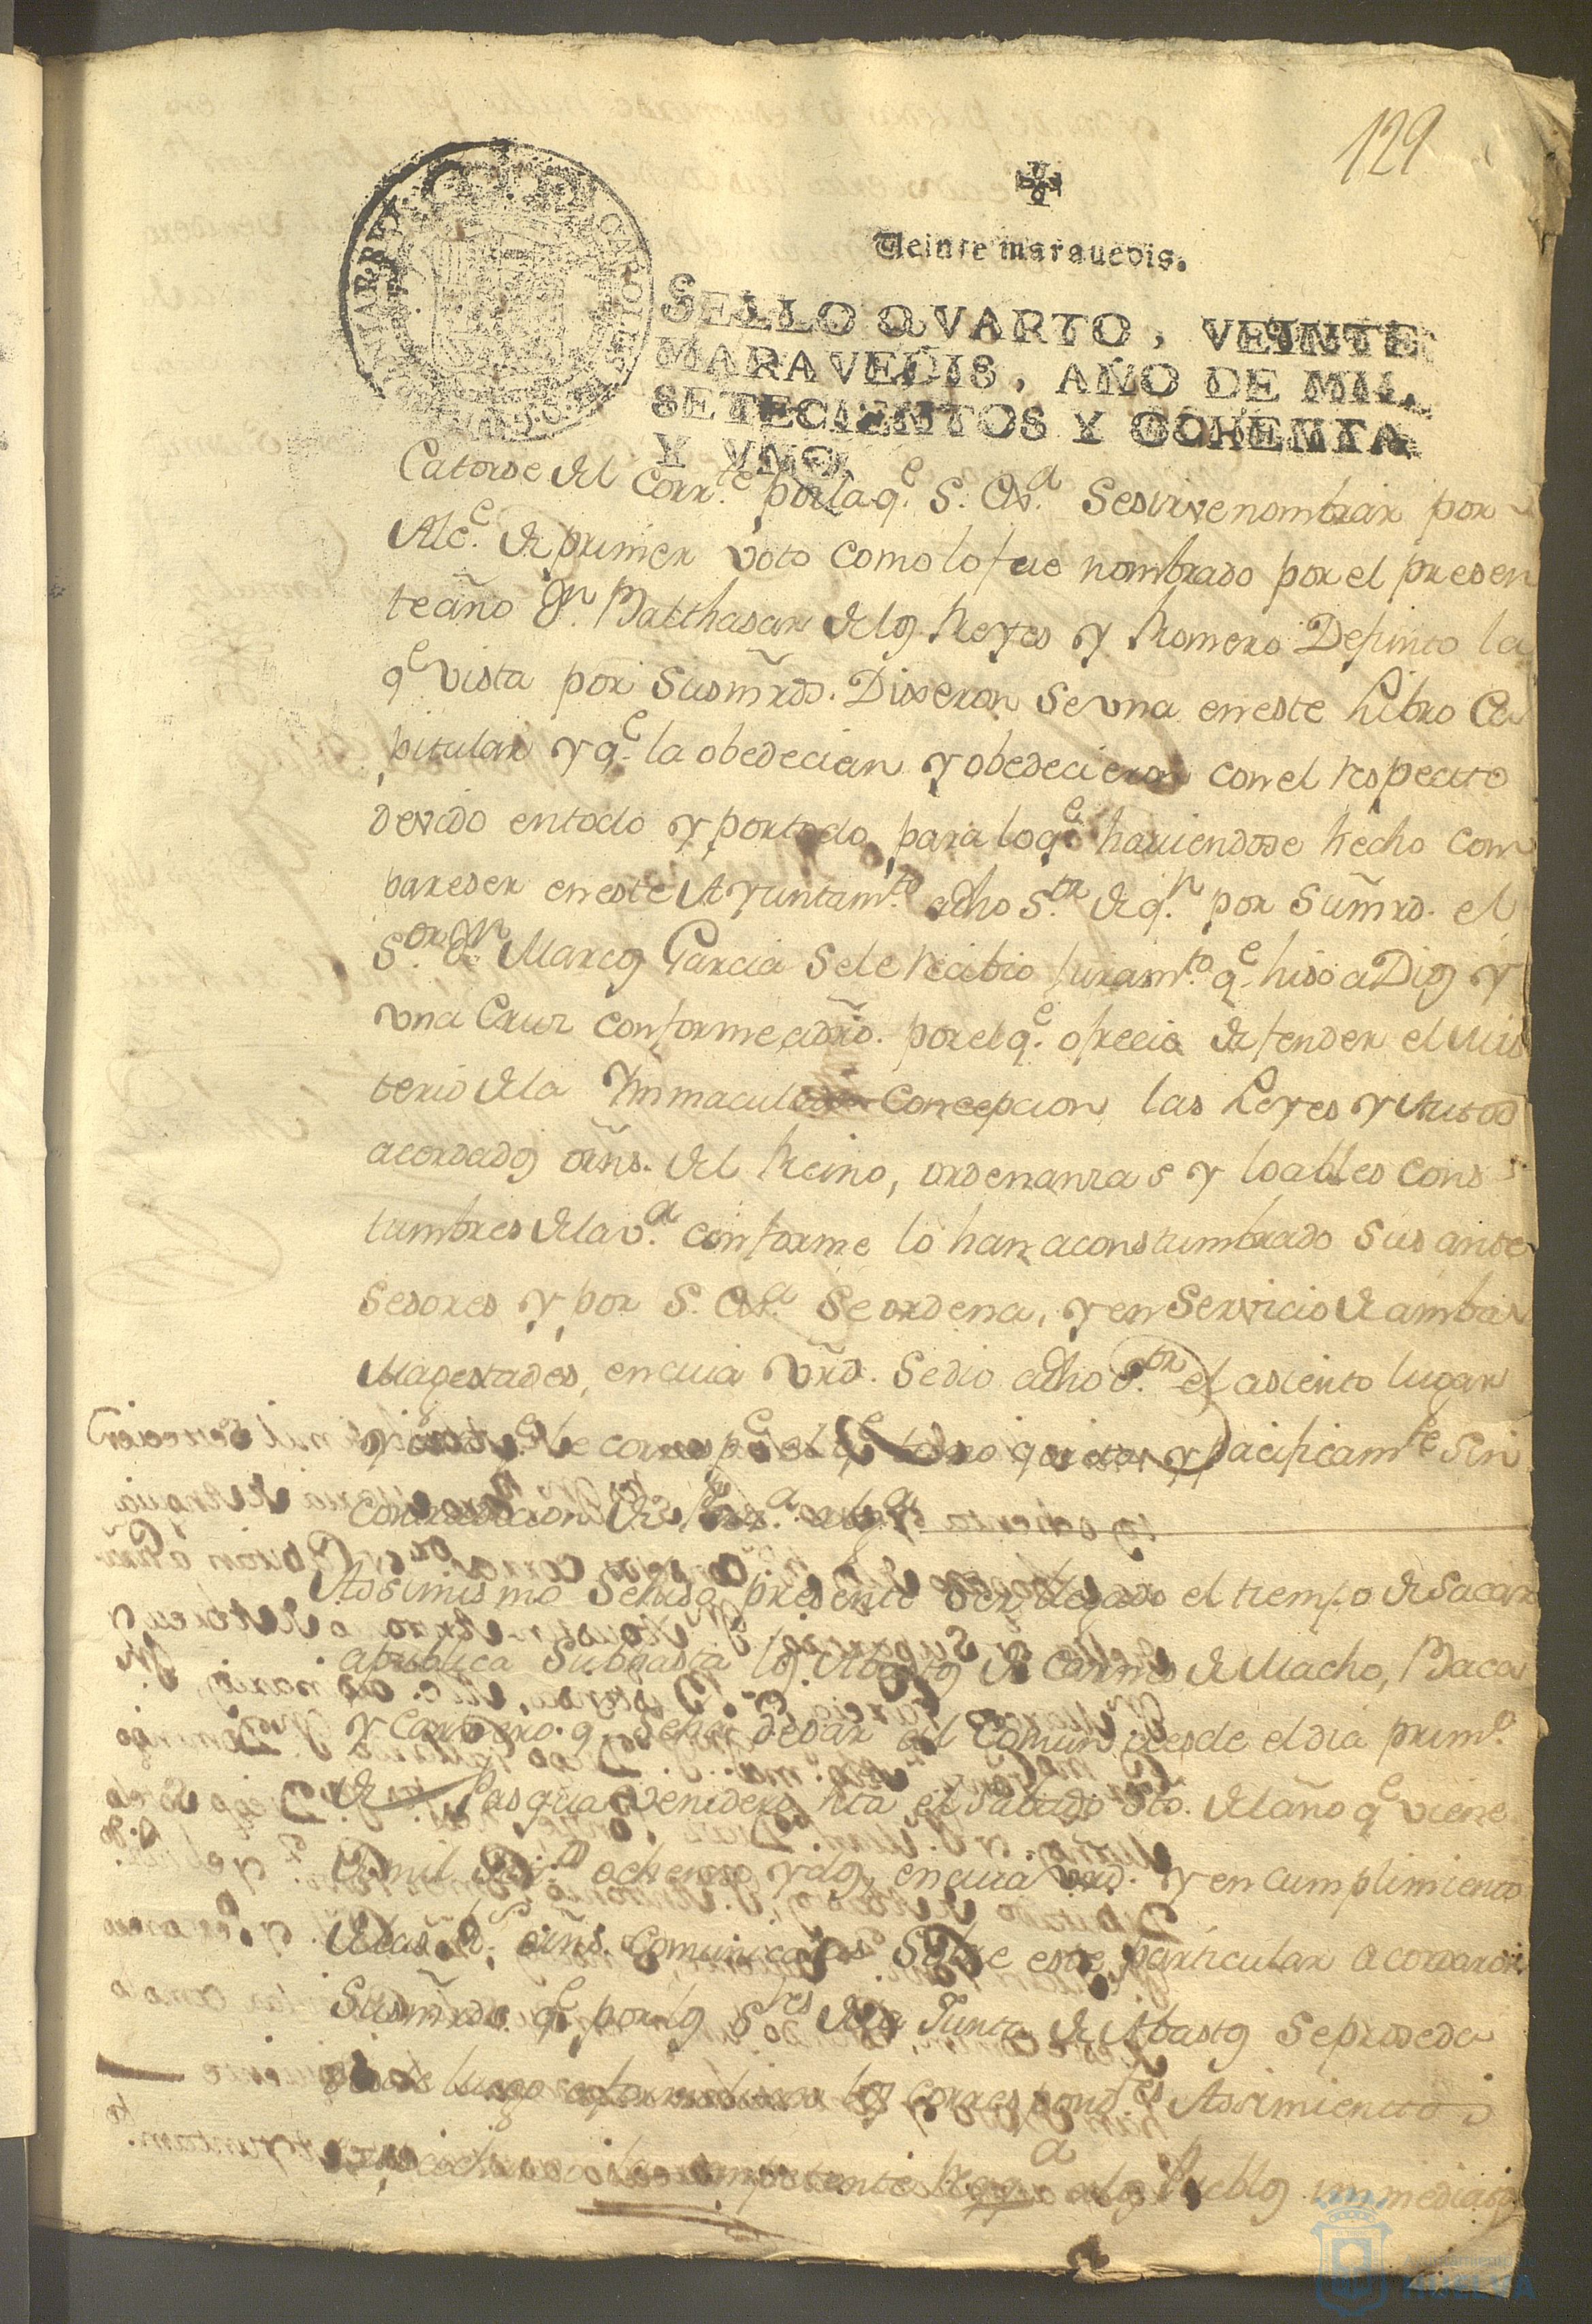 129
Veinte marauedis.
SELLO QVARTO, VEINTE
MARAVEDIS, AÑO DE MIL
SETECIENTOS Y OCHENTA
Y VNO.
Catorse del Corr.te por la q.e S. Ex.a se sirve nombrar por
Alc.e de primer voto como lo fue nombrado por el presen
te año D.n Balthasar de los Reyes y Romero Defunto la
q.e vista por Susmrds. Dixeron se una en este Libro Ca
pitular y q.e la obedecian y obedecieron con el respecto
devido en todo y por todo, para lo q.e haviendose hecho com
pareser en este Ayuntam.to a dho S.or de q.n por Sumrd. el
S.or D.n Marcos Garcia se le recibio juram.to q.e hiso a Dios y
una Cruz conforme a dro. por el q.e ofrecio defender el Mis
terio de la Ynmaculada Concepcion, las Leyes y Autos
acordados orns. del Reino, ordenanzas y loables cons
tumbres de la v.a conforme lo han aconstumbrado sus ante
sesores y por S. Ex.a se ordena, y en servicio de ambas
Magestades, en cuia vrd. se dio a dho S.or el asiento lugar
q.e le corresp.e el q.e tomo quieta y pacificam.te sin
contradicion de Pers.a alg.a
Assimismo se hiso presente ser llegado el tiempo de sacar
a publica Subhasta los Abastos de Carnes de Macho, Baca
y Carnero q.e se ha de dar al Comun desde el dia prim.o
de Pascua venidero hta el Sabado Sto. del año q.e viene
de mil Set.os ochenta y dos, en cuia vrd. y en cumplimiento
de las R.s orns. comunicadas sobre este particular acordaron
Susmrds. q.e por los S.res de la Junta de Abastos se proseda
desde luego a formalisar los correspond.tes Assimientos
competente Req.a a los Pueblos immediatos
Ayuntamiento de
HUELVA